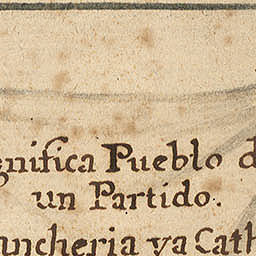 gnifica Pueblo d
un Partido.
ncheria ya Cath